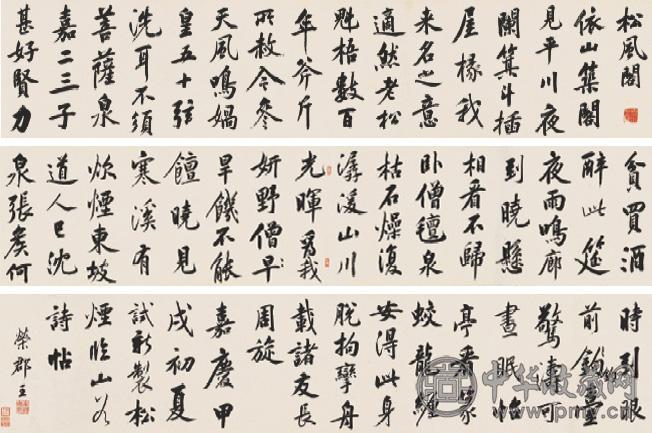 松風閣
依山築閣
見平川夜
闌箕斗插
屋椽我
來名之意
適然老松
魁梧數百
年斧斤
所赦今參
天風鳴媧
皇五十弦
洗耳不須
菩薩泉
嘉二三子
甚好賢力
貧買酒
醉此筵
夜雨鳴廊
到曉懸
相看不歸
臥僧氈泉
枯石燥復
潺湲山川
光暉爲我
妍野僧早
旱饑不能
饘曉見
寒溪有
炊煙東坡
道人已沈
泉張矦何
時到眼
前釣臺
驚濤可
晝眠怡
亭看篆
蛟龍纏
安得此身
脫拘攣舟
載諸友長
周旋
嘉慶甲
戌初夏
試新製松
煙臨山谷
詩帖
榮郡王
中华收藏网